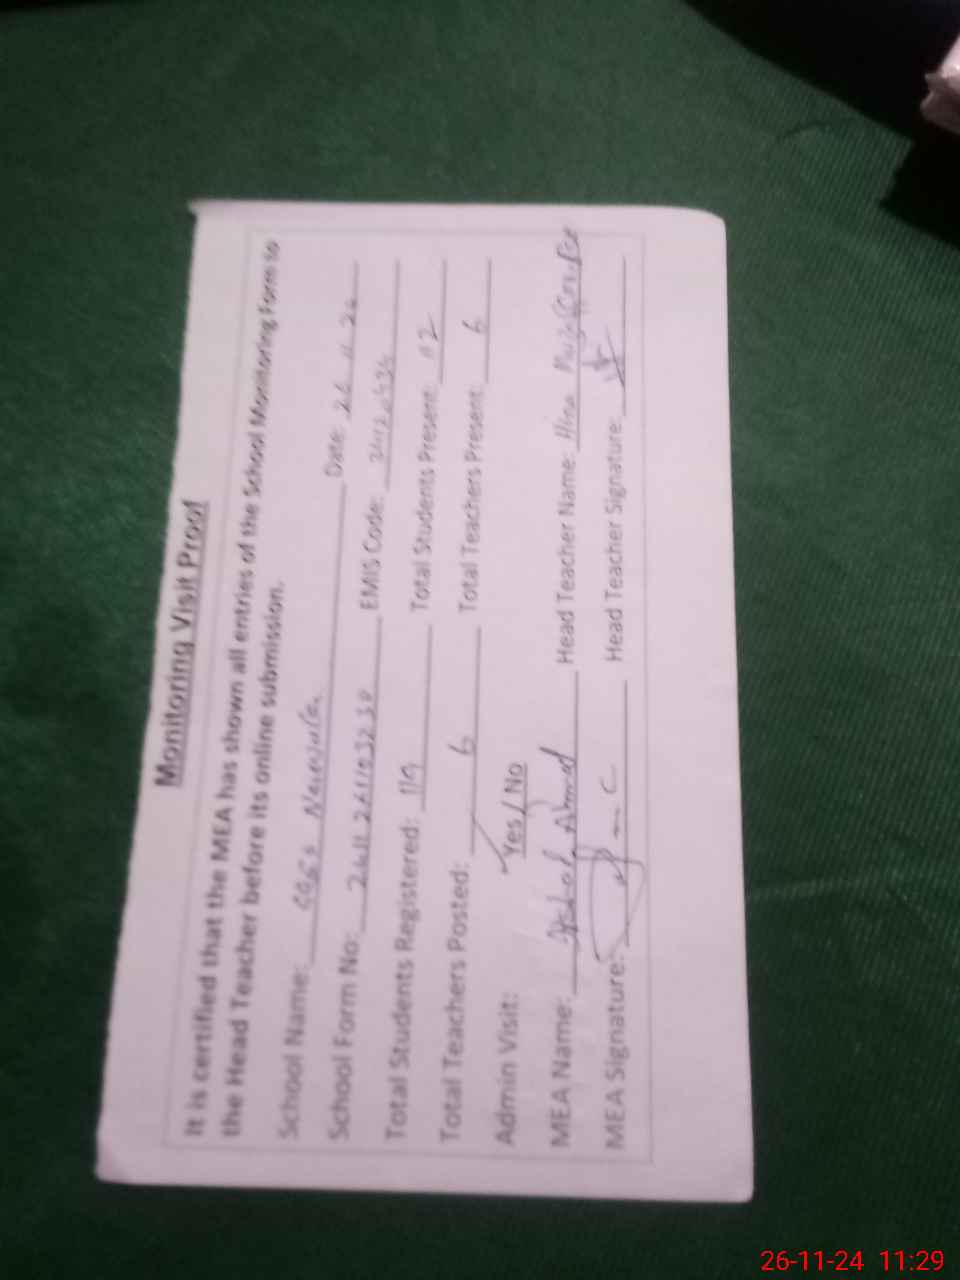 Monitoring Visit Proof
It is certified that the MEA has shown all entries of the School Monitoring Form to
the Head Teacher before its online submission.
School Name: Date: 26 11 24
School Form No: EMIS Code:
Total Students Registered: 119 Total Students Present: 112
Total Teachers Posted: 6 Total Teachers Present: 6
Admin Visit: Yes / No
MEA Name: Ahmad Head Teacher Name: Hina
MEA Signature: Head Teacher Signature:
26-11-24 11:29